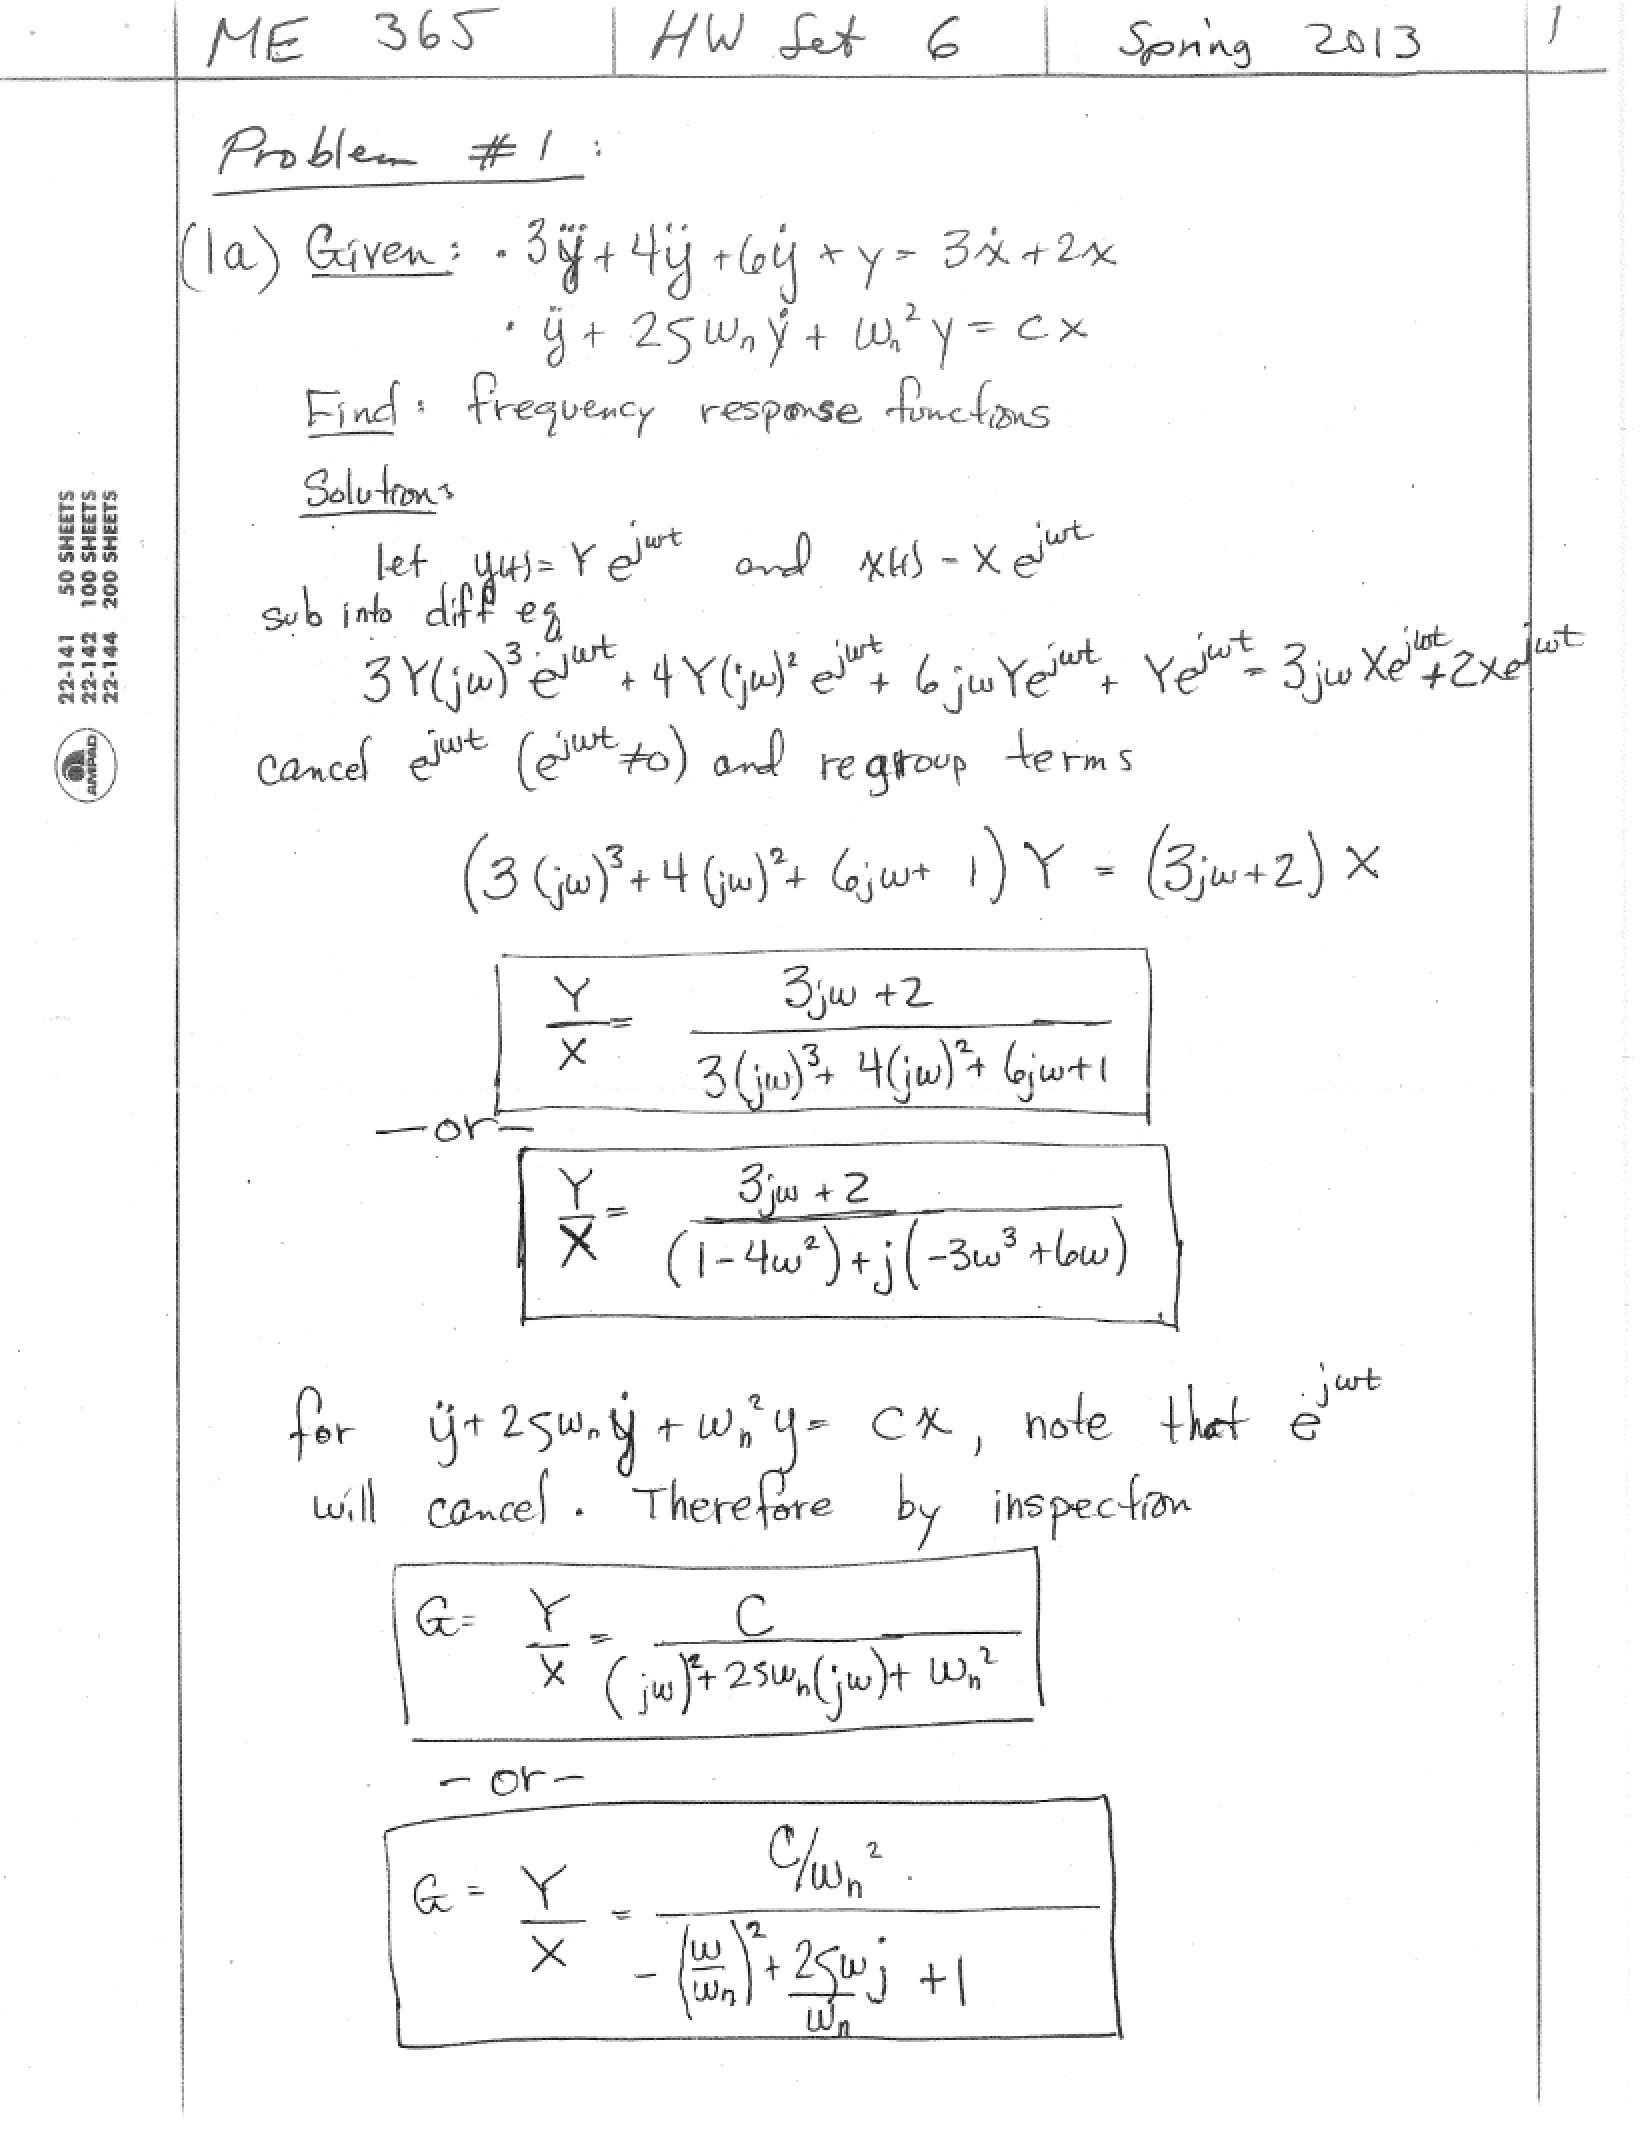 ME 365 HW Set 6 Spring 2013 1
Problem #1:
(1a) Given: · 3y⃛ + 4ÿ + 6ẏ + y = 3ẋ + 2x
· ÿ + 2ζωₙẏ + ωₙ²y = cx
Find: frequency response functions
Solution:
let y(t) = Y e^{jωt} and x(t) = X e^{jωt}
sub into diff eq
3Y(jω)³e^{jωt} + 4Y(jω)²e^{jωt} + 6jωYe^{jωt} + Ye^{jωt} = 3jωXe^{jωt} + 2Xe^{jωt}
cancel e^{jωt} (e^{jωt} ≠ 0) and regroup terms
(3(jω)³ + 4(jω)² + 6jω + 1) Y = (3jω + 2) X
Y/X = (3jω + 2)/(3(jω)³ + 4(jω)² + 6jω + 1)
— or —
Y/X = (3jω + 2)/((1 - 4ω²) + j(-3ω³ + 6ω))
for ÿ + 2ζωₙẏ + ωₙ²y = cx, note that e^{jωt}
will cancel. Therefore by inspection
G = Y/X = C/((jω)² + 2ζωₙ(jω) + ωₙ²)
- or -
G = Y/X = (C/ωₙ²)/(-(ω/ωₙ)² + (2ζω/ωₙ)j + 1)
22-141 50 SHEETS
22-142 100 SHEETS
22-144 200 SHEETS
AMPAD